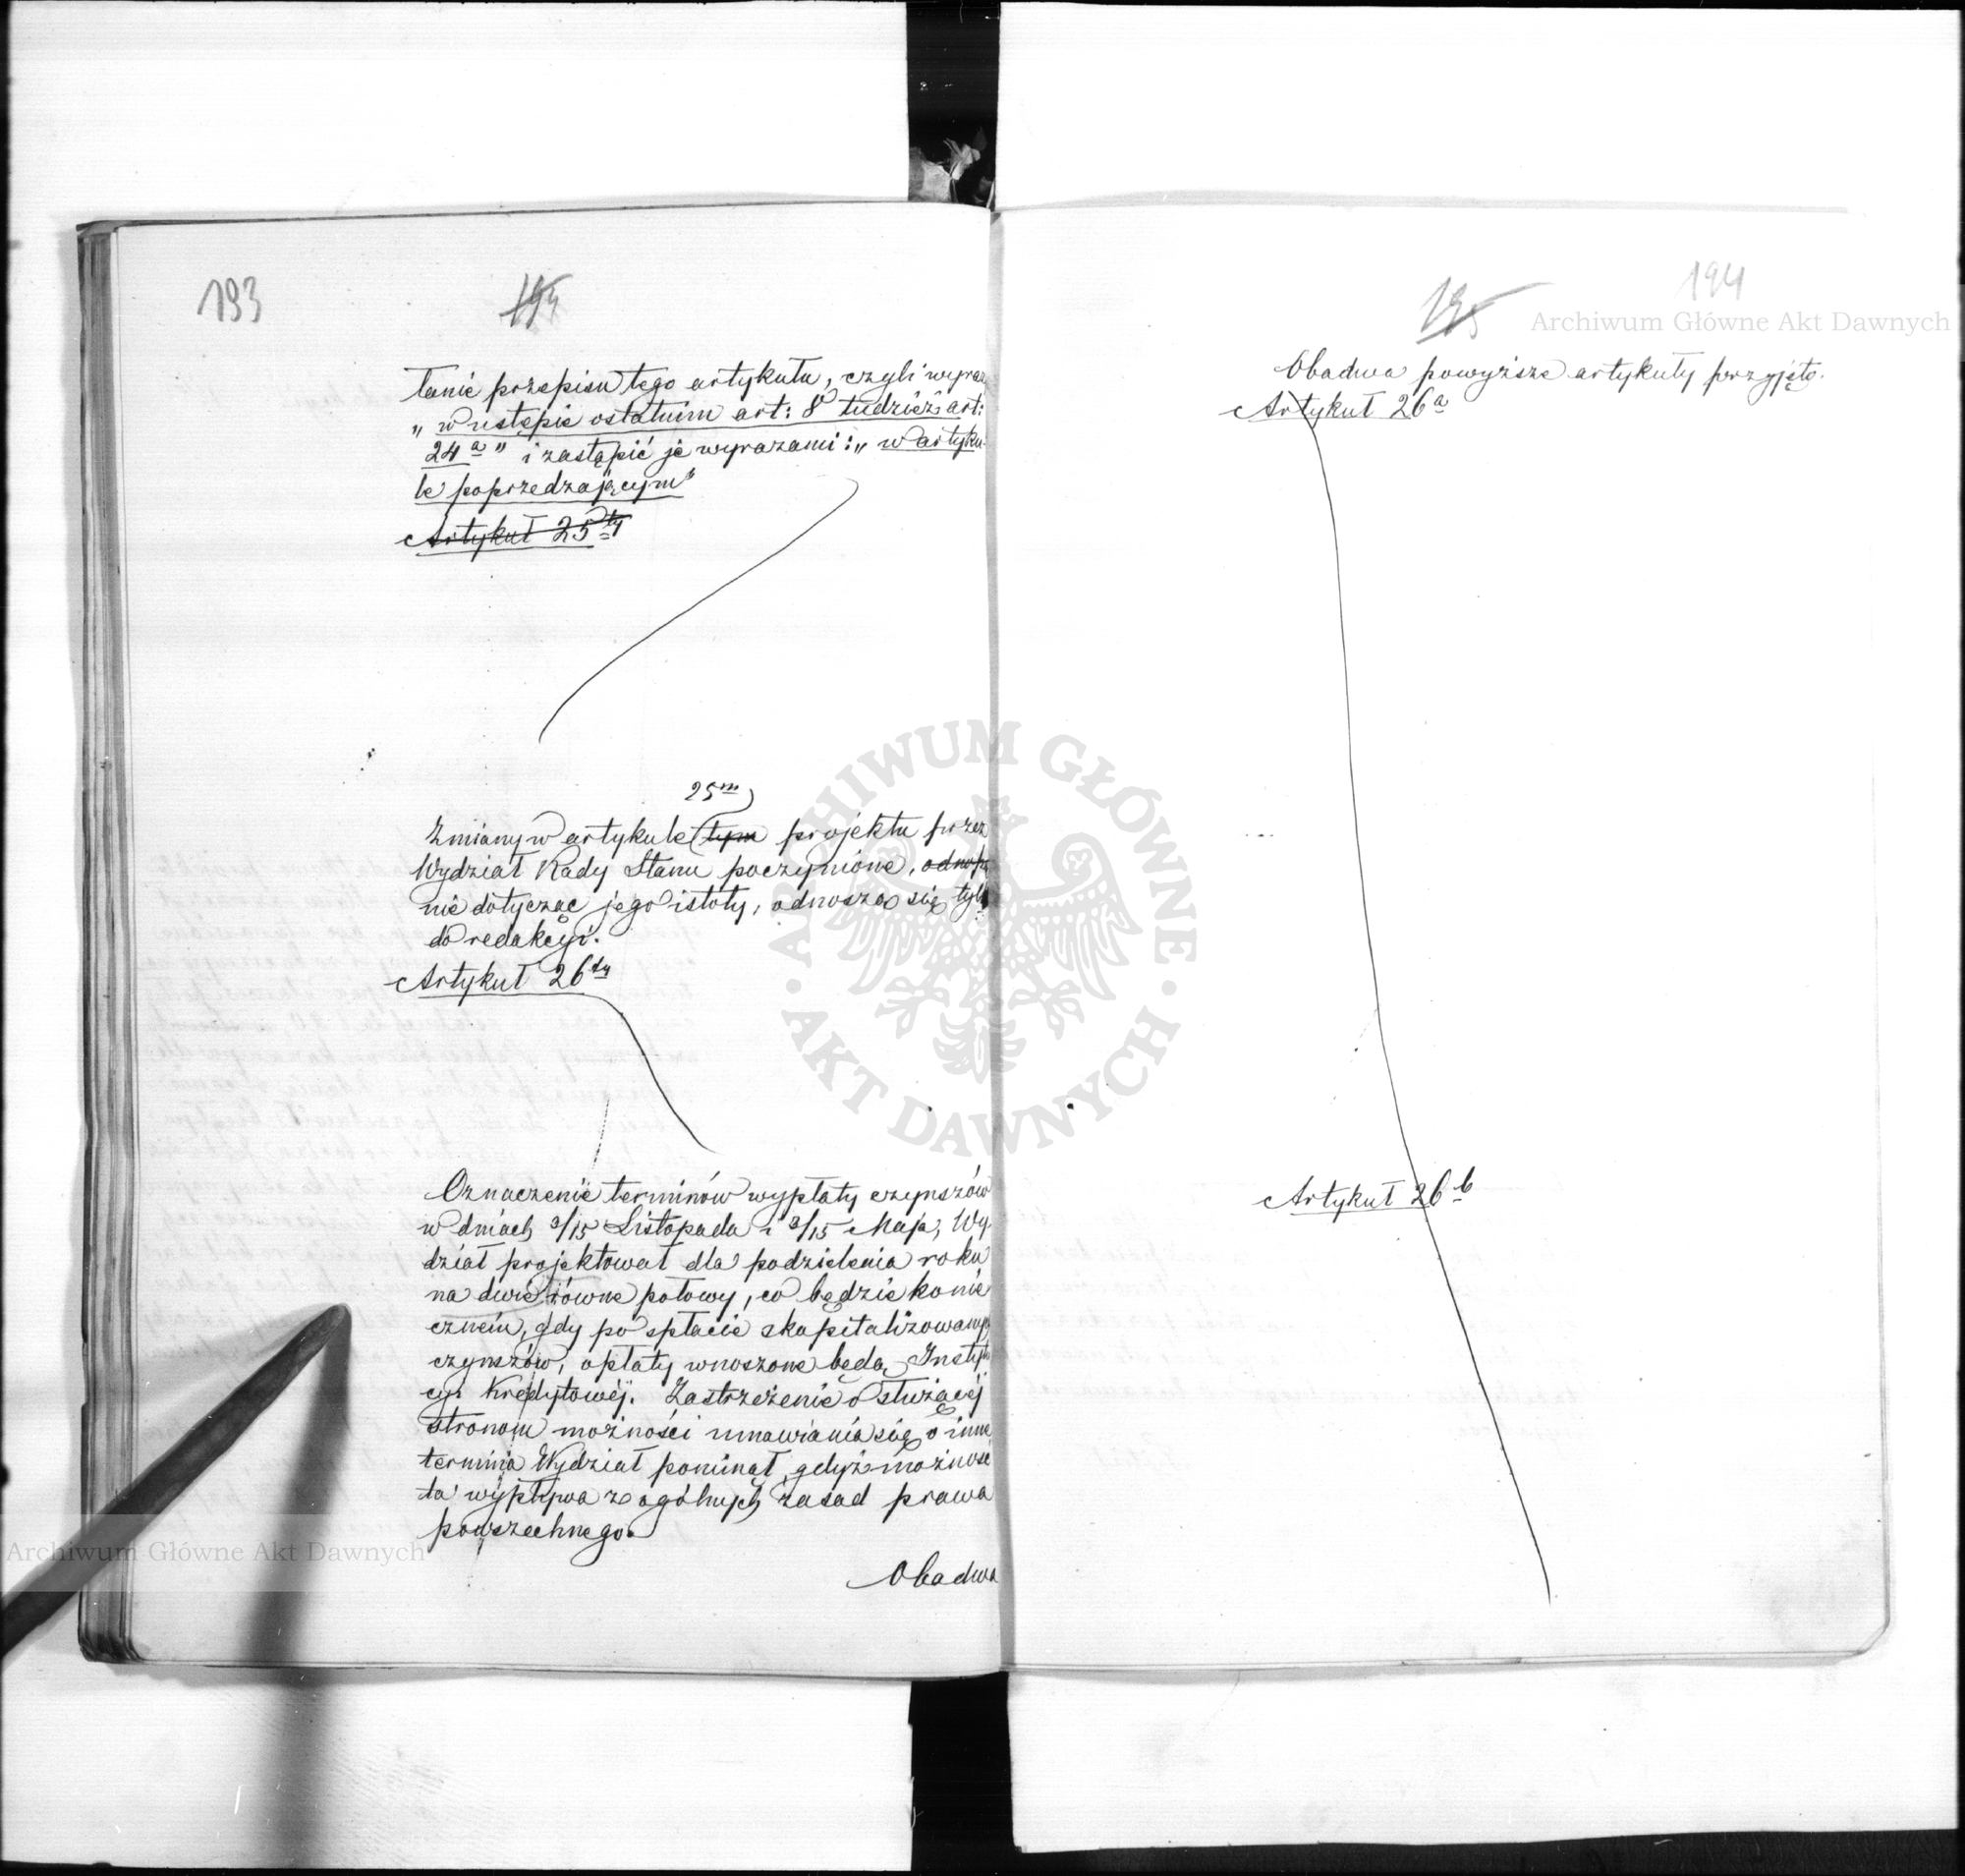 193
194
łanie przepisu tego artykułu, czyli wyraz
„w ustępie ostatnim art: 8 tudzież art:
24a" i zastąpić je wyrazami: „w artyku-
le poprzedzającym"
Artykuł 25ty
25m
Zmiany w artykule tym projektu przez
Wydział Rady Stanu poczynione,
nie dotycząc jego istoty, odnoszą się tylko
do redakcyi.
Artykuł 26ty
Oznaczenie terminów wypłaty czynszów
w dniach 3/15 Listopada i 3/15 Maja, Wy-
dział projektował dla podzielenia roku
na dwie równe połowy, co będzie konie
cznem, gdy po spłacie skapitalizowanych
czynszów, opłaty wnoszone będą Instytu
cyi Kredytowéj. Zastrzeżenie o służącéj
stronom możności umawiania się o inne
termina Wydział pominął, gdyż możność
ta wypływa z ogólnych zasad prawa
powszechnego.
Obadwa
195
194
Obadwa powyższe artykuły przyjęto.
Artykuł 26a
Artykuł 26b
Archiwum Główne Akt Dawnych
ARCHIWUM GŁÓWNE
AKT DAWNYCH
Archiwum Główne Akt Dawnych